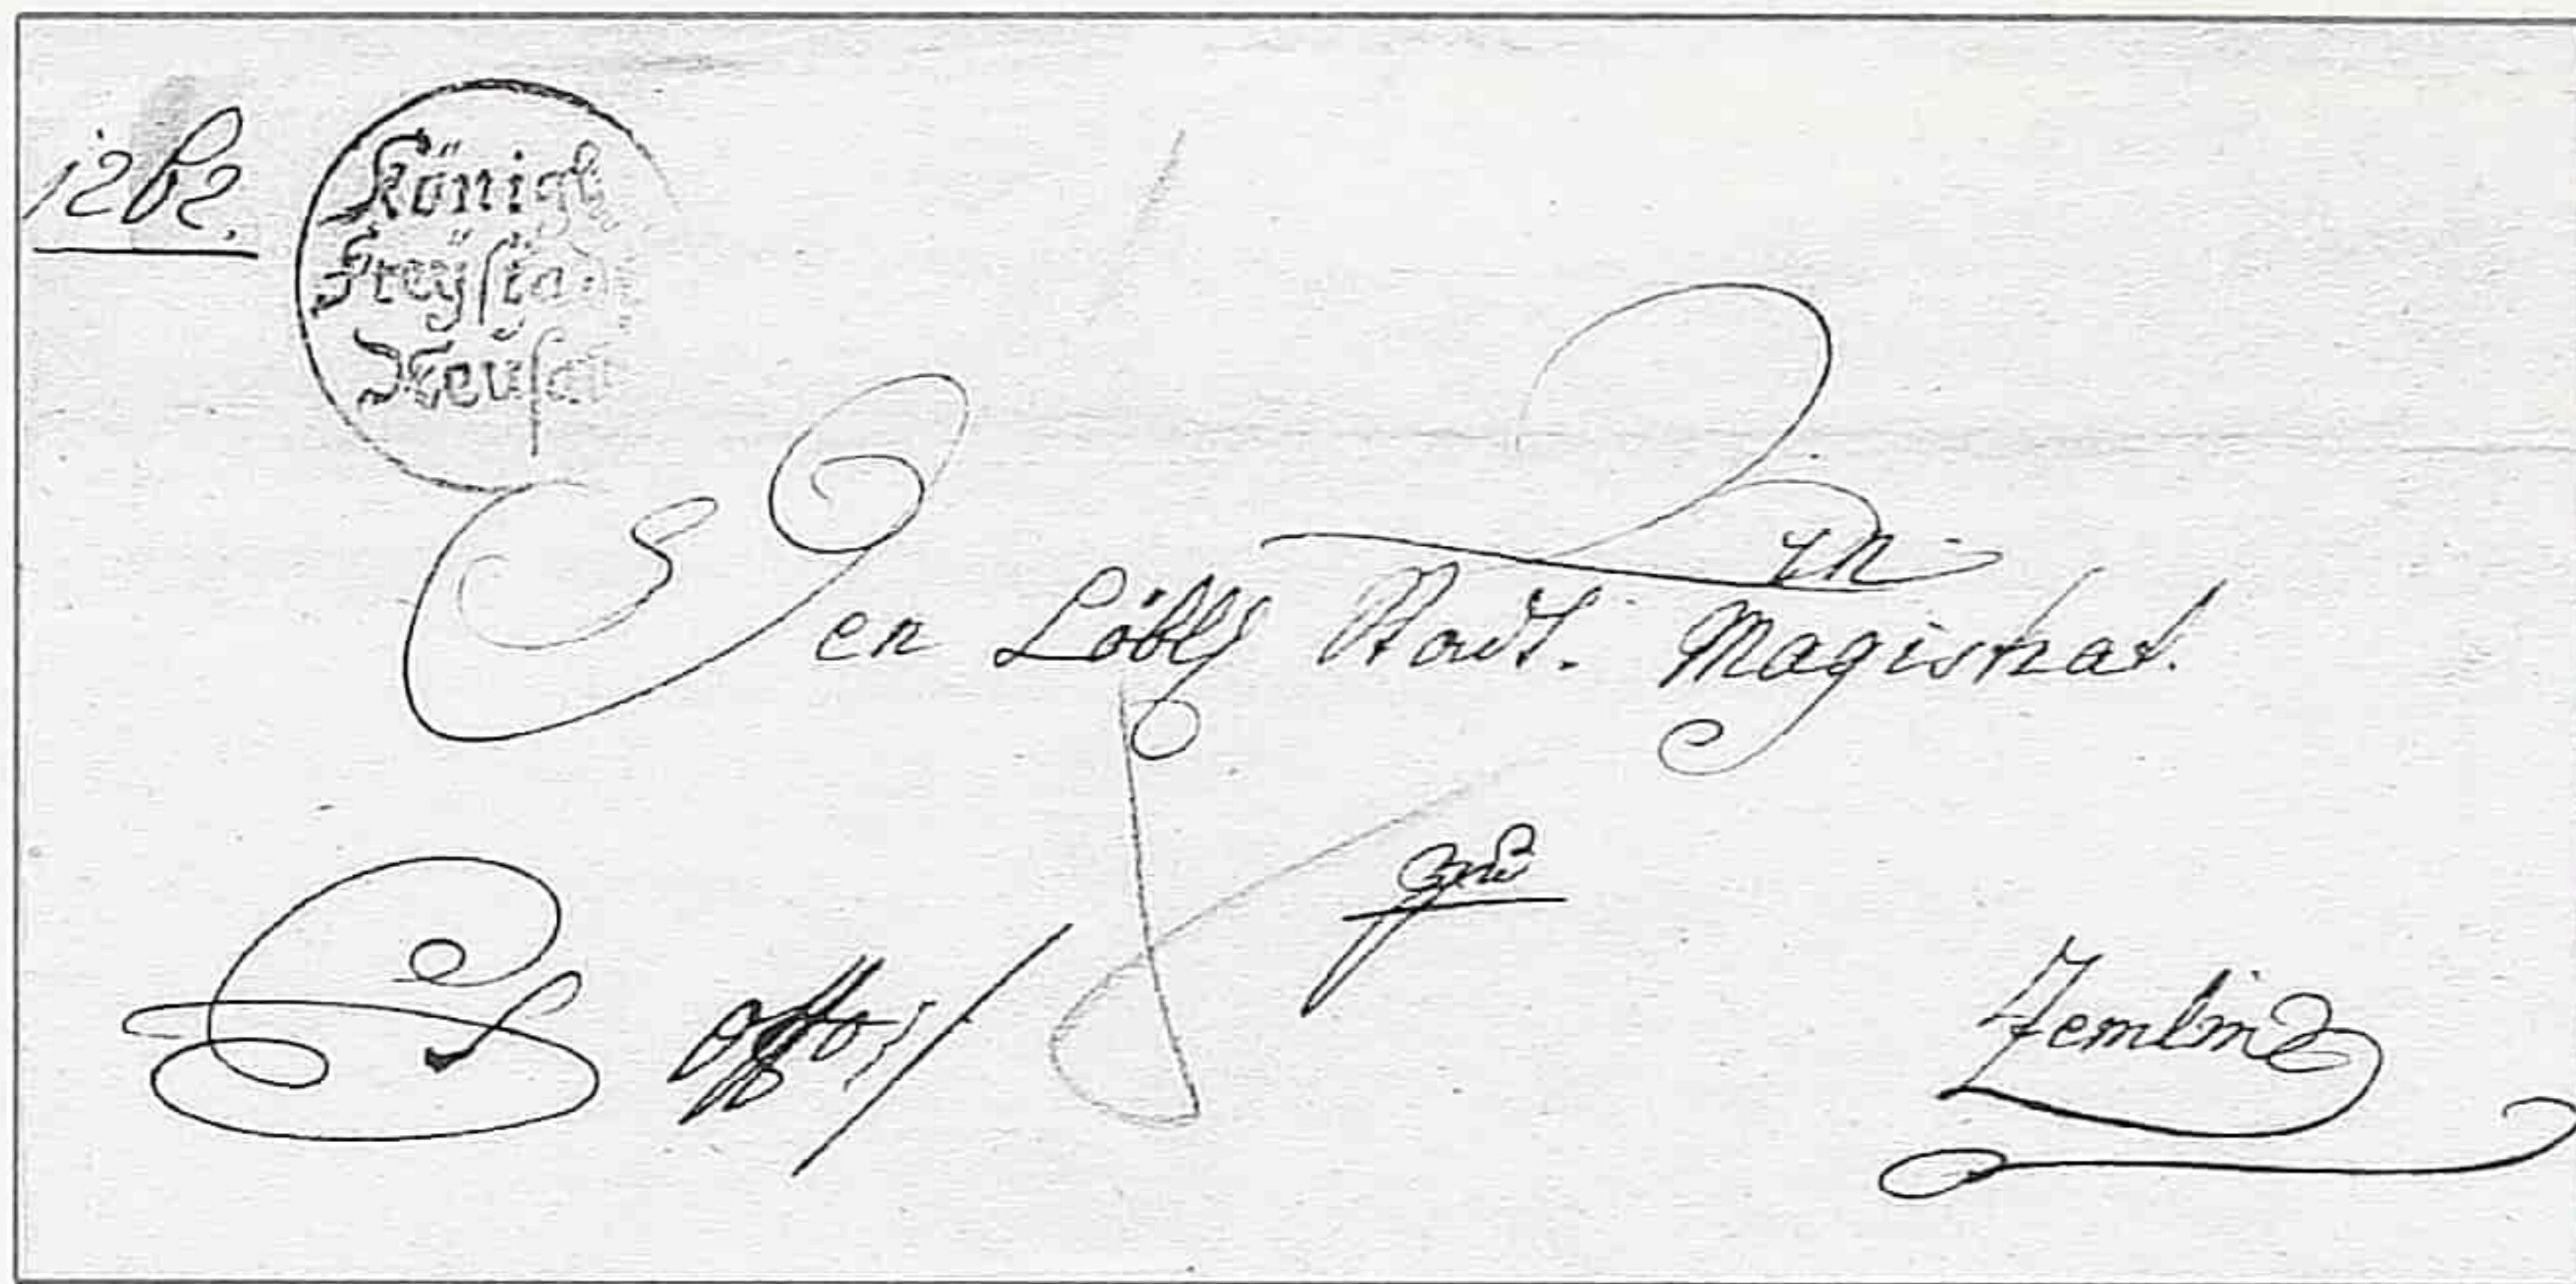 Königl.
Freÿstadt
Neusat
An
Den Löbl. Stadt. Magistrat.
Ex offo
Zemlin